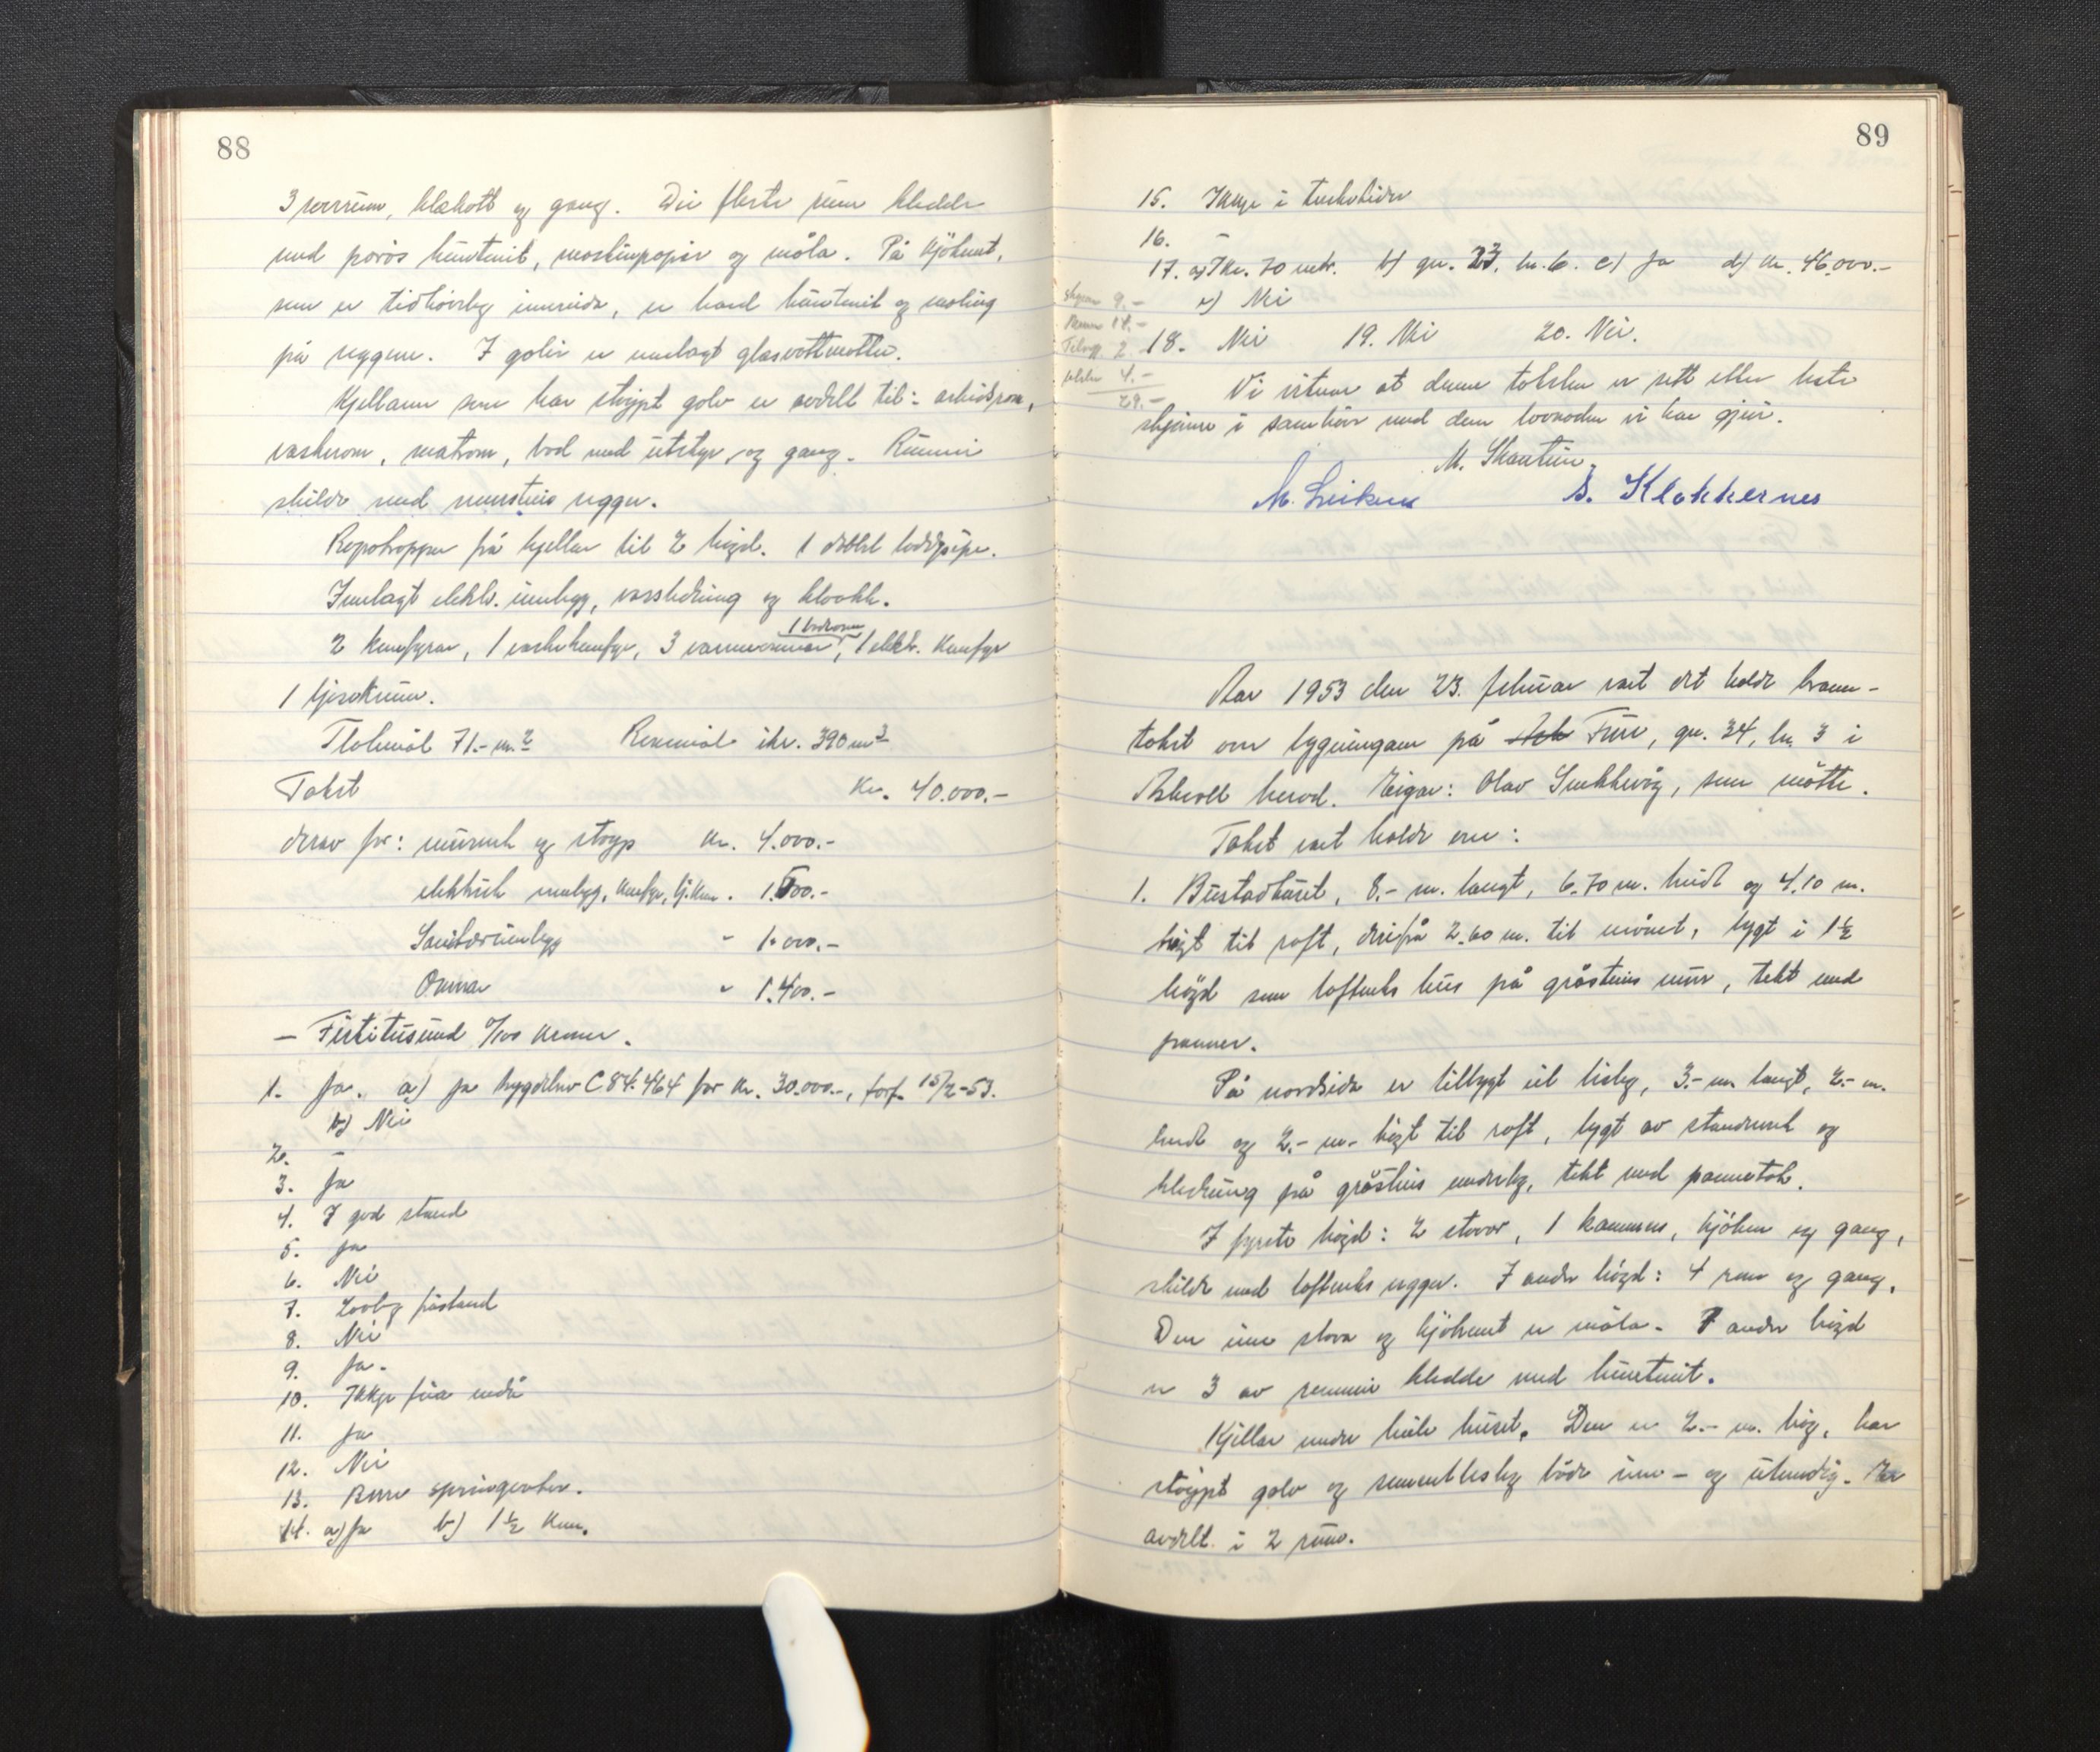 88
3 soverum, klekott og gang. Dei fleste rum kledde
med porøs huntonit, maskinpapir og måla. På kjökenet,
som er tidhøvleg innreida, er hard huntonit og maling
på veggene. I golv er innlagt glasvattmatter.
Kjellaren som har støypt golv er avdelt til: arbeidsrom,
vaskerom, matrom, bod med utstyr og gang. Rummi
skilde med mursteins vegger.
Repotropper frå kjellar til 2 høgd. 1 dobbel loddpipe.
Innlagt elektr. innlegg, vassledning og kloakk.
1 badeomn
2 komfyrar, 1 vaskekomfyr, 3 varmeomnar, 1 elektr. komfyr
1 kjøkerum.
Flatemål 71.- m.2 Romemål ikr. 390 m3
Takst Kr. 40.000.-
derav for: murverk og støyp Kr. 4.000.-
elektrisk innlegg, komfyr, kj. 1.500.-
Sanitærinnlegg " 1.000.-
Omnar " 1.400.-
— Førtitusund 0/100 kroner.
1. Ja. a) ja bygdebrev C 84.464 for kr. 30.000.-, forf. 15/2-53.
b) Nei
2. –
3. Ja
4. I god stand
5. Ja
6. Nei
7. Lovleg påstand
8. Nei
9. Ja.
10. Ikkje fåa endå
11. Ja
12. Nei
13. Berre springvatn.
14. a) Ja b) 1½ km.
89
15. Ikkje i turketider
16. –
17. a) Ikr. 70 mtr. b) gn. 23, bn. 6. c) Ja d) kr. 46.000.-
skyss 9.- e) Nei
14.-
2 18. Nei 19. Nei 20. Nei.
4.- Vi vitnar at denne taksten er sett etter beste
29.-
skjøn i samhøve med den lovnaden vi har gjeve.
M. Skartun.
M. Leiknes S. Klokkernes
Aar 1953 den 23. februar vart det halde brann-
takst over bygningane på Ask Fure, gn. 34, bn. 3 i
Askvoll herad. Eigar: Olav Smekkevåg, som møtte.
Takst vart halde over:
1. Bustadhuset, 8.- m. langt, 6.70 m. breidt og 4.10 m.
høgt til roft, derifrå 2.60 m. til mønet, bygt i 1½
høgd som lofteverks hus på gråsteins mur, tekt med
panner.
På nordsida er tilbygt eit bislag, 3.- m. langt, 2.- m.
breidt og 2.- m. høgt til roft, bygt av standverk og
kledning på gråsteins underlag, tekt med pannetak.
I fyrste høgd: 2 stover, 1 kammers, kjøken og gang,
skilde med lofteverks vegger. I andre høgd: 4 rom og gang.
Den eine stova og kjøkenet er måla. I andre høgd
er 3 av rommi kledde med huntonit.
Kjellar under heile huset. Den er 2.- m. høg, har
støypt golv og sementbeslag både inn- og utvendig. Er
avdelt i 2 rum.